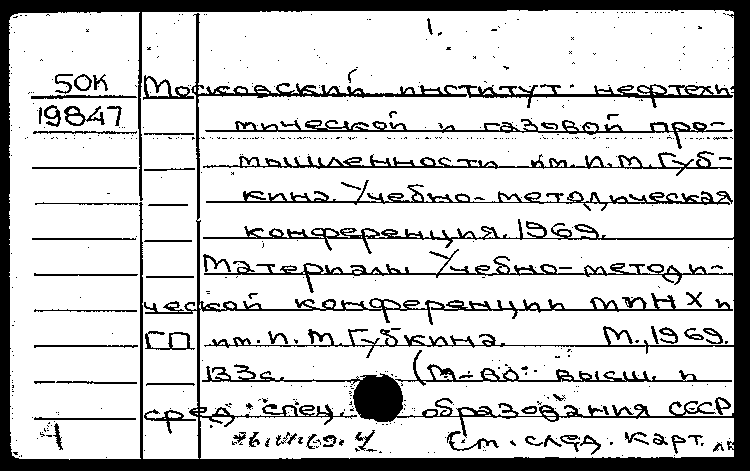 1.
50К Московский институт нефтехи-
19847 мической и газовой про-
мышленности им. И. М. Губ-
кина. Учебно-методическая
конференция. 1969.
Материалы Учебно-методи-
ческой конференции МИНХ и
ГП им. И. М. Губкина. М., 1969.
133с. (М-во высш. и
сред. спец. образования СССР
См. след. карт.